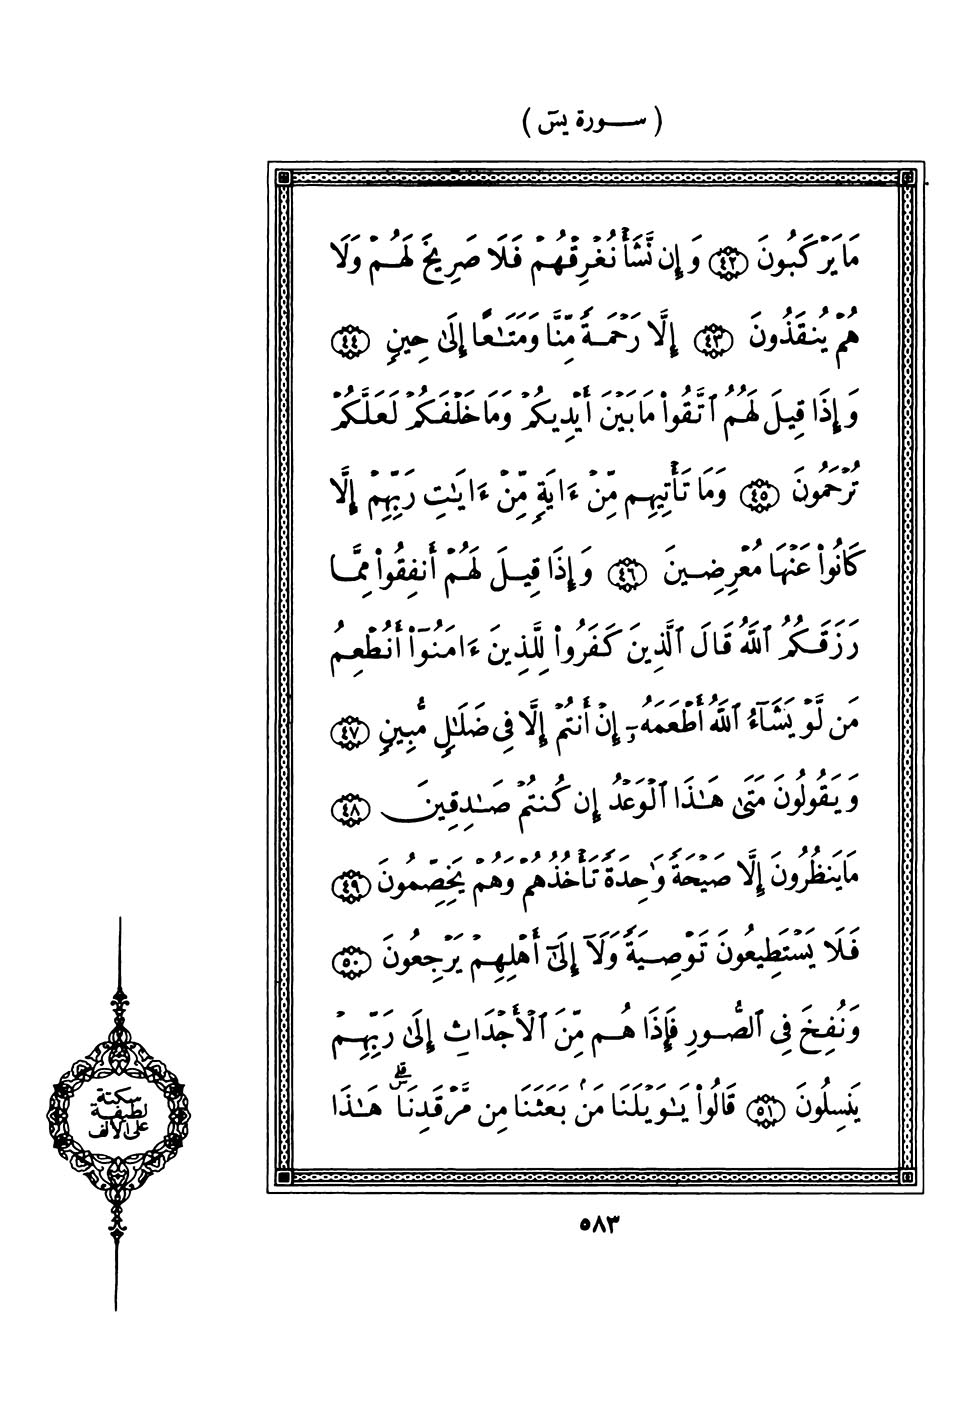 ( سورة يسٓ )
مَا يَرْكَبُونَ ٤٢ وَإِن نَّشَأْ نُغْرِقْهُمْ فَلَا صَرِيخَ لَهُمْ وَلَا
هُمْ يُنقَذُونَ ٤٣ إِلَّا رَحْمَةً مِّنَّا وَمَتَٰعًا إِلَىٰ حِينٍ ٤٤
وَإِذَا قِيلَ لَهُمُ ٱتَّقُوا۟ مَا بَيْنَ أَيْدِيكُمْ وَمَا خَلْفَكُمْ لَعَلَّكُمْ
تُرْحَمُونَ ٤٥ وَمَا تَأْتِيهِم مِّنْ ءَايَةٍ مِّنْ ءَايَٰتِ رَبِّهِمْ إِلَّا
كَانُوا۟ عَنْهَا مُعْرِضِينَ ٤٦ وَإِذَا قِيلَ لَهُمْ أَنفِقُوا۟ مِمَّا
رَزَقَكُمُ ٱللَّهُ قَالَ ٱلَّذِينَ كَفَرُوا۟ لِلَّذِينَ ءَامَنُوٓا۟ أَنُطْعِمُ
مَن لَّوْ يَشَآءُ ٱللَّهُ أَطْعَمَهُۥٓ إِنْ أَنتُمْ إِلَّا فِى ضَلَٰلٍ مُّبِينٍ ٤٧
وَيَقُولُونَ مَتَىٰ هَٰذَا ٱلْوَعْدُ إِن كُنتُمْ صَٰدِقِينَ ٤٨
مَا يَنظُرُونَ إِلَّا صَيْحَةً وَٰحِدَةً تَأْخُذُهُمْ وَهُمْ يَخِصِّمُونَ ٤٩
فَلَا يَسْتَطِيعُونَ تَوْصِيَةً وَلَآ إِلَىٰٓ أَهْلِهِمْ يَرْجِعُونَ ٥٠
وَنُفِخَ فِى ٱلصُّورِ فَإِذَا هُم مِّنَ ٱلْأَجْدَاثِ إِلَىٰ رَبِّهِمْ
يَنسِلُونَ ٥١ قَالُوا۟ يَٰوَيْلَنَا مَنۢ بَعَثَنَا مِن مَّرْقَدِنَا ۜ ۗ هَٰذَا
سكتة
لطيفة
على الألف
٥٨٣